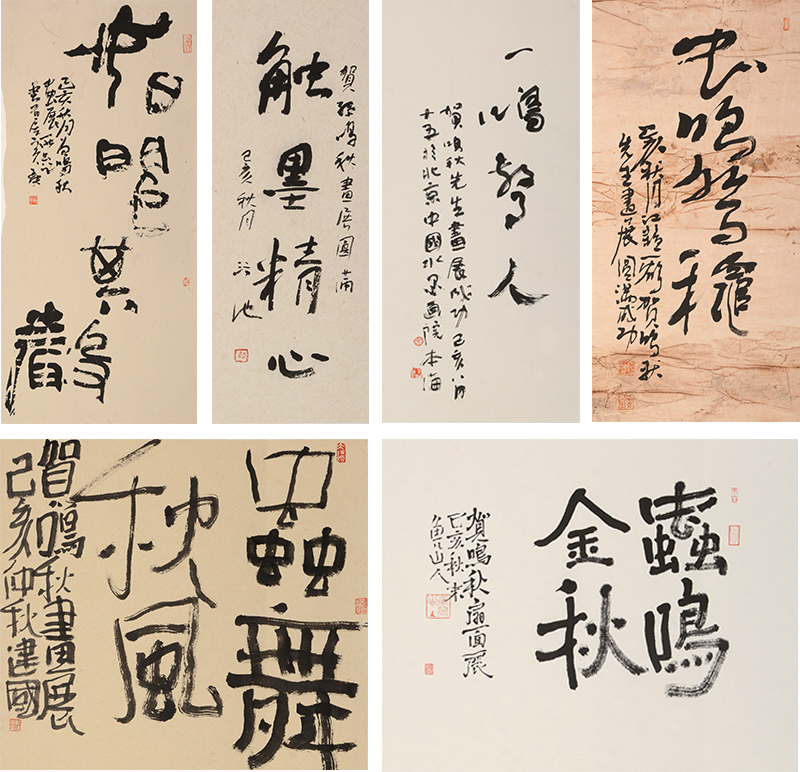 如其聲
己亥秋月為鳴秋
畫展
触墨精心
賀鳴秋畫展圓满
己亥秋月
一鳴驚人
賀鳴秋先生畫展成功己亥八月
十五於北京中國水墨画院本海
虫鳴驚龝
己亥秋月江賀鳴秋
先生畫展圓滿成功
蟲舞
秋風
賀鳴秋畫展
己亥仲秋建國
蟲鳴
金秋
賀鳴秋扇面展
己亥秋末
山人